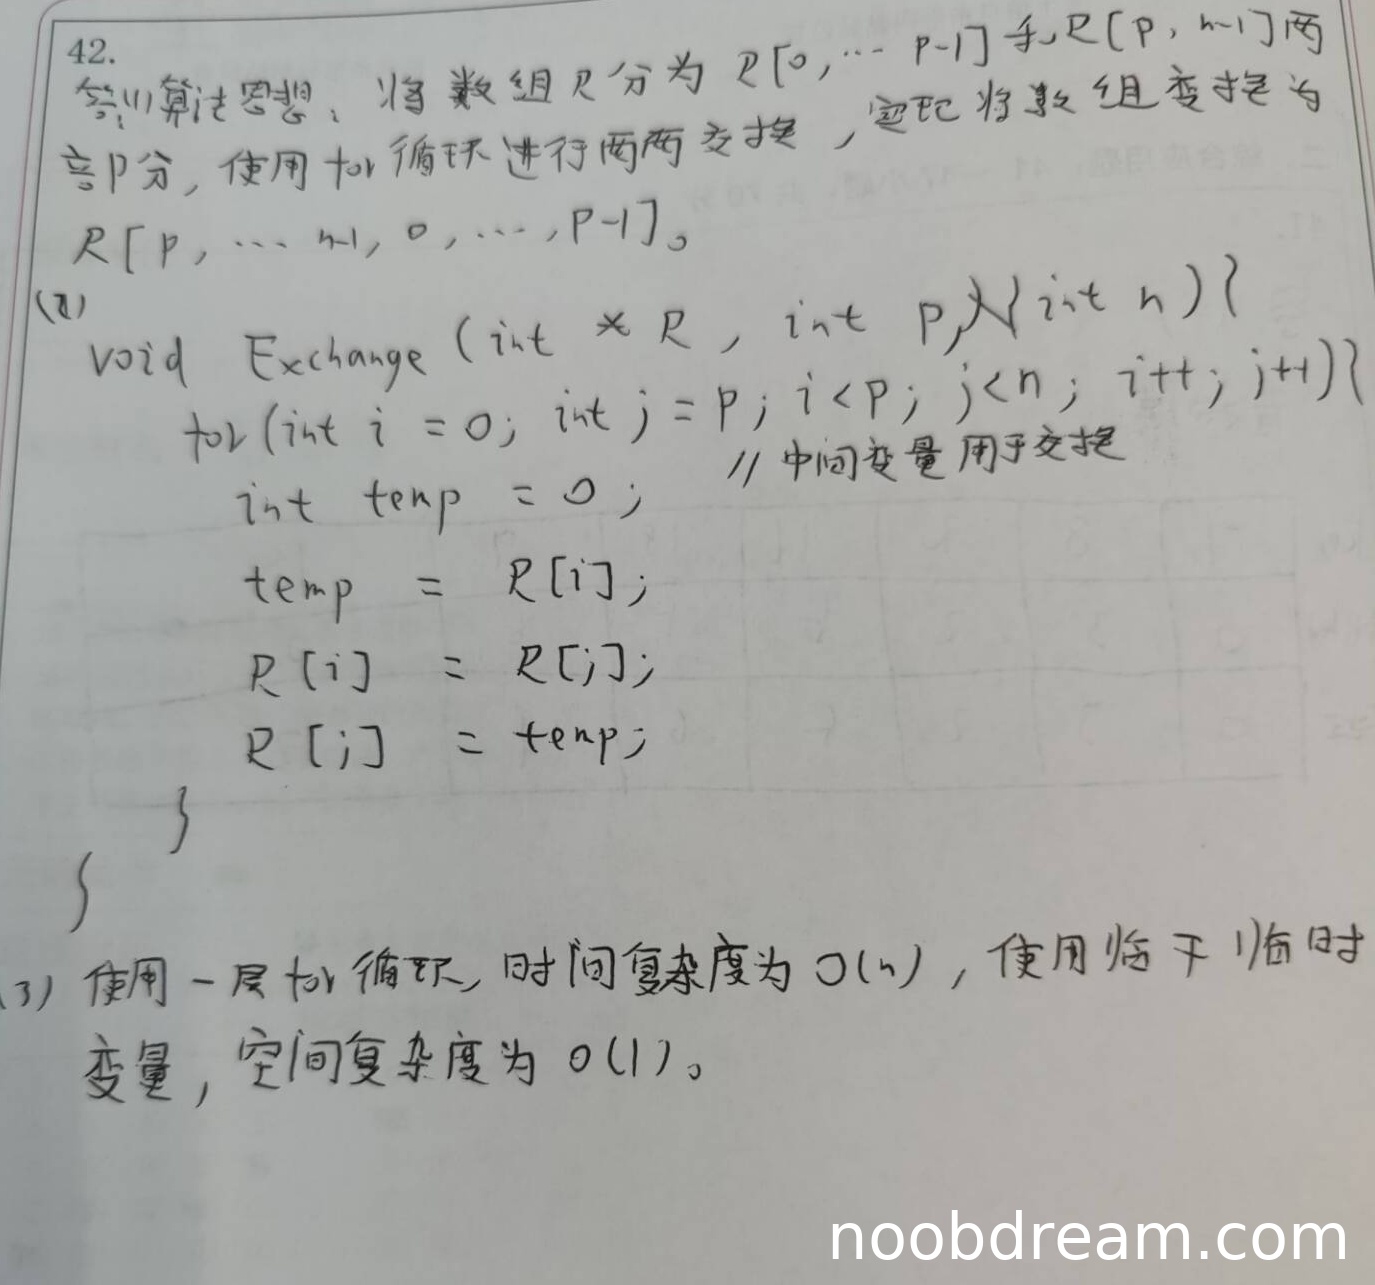 42.
答：(1)算法思想：将数组R分为R[0,…p-1]和R[p,n-1]两
部分，使用for循环进行两两交换，实现将数组变换为
R[p,…n-1,0,…,p-1]。
(2)
void Exchange(int * R, int p, int n){
for(int i = 0; int j = p; i<p; j<n; i++; j++){
int temp = 0; //中间变量用于交换
temp = R[i];
R[i] = R[j];
R[j] = temp;
}
}
(3) 使用一层for循环,时间复杂度为O(n)，使用临于临时
变量，空间复杂度为O(1)。
noobdream.com